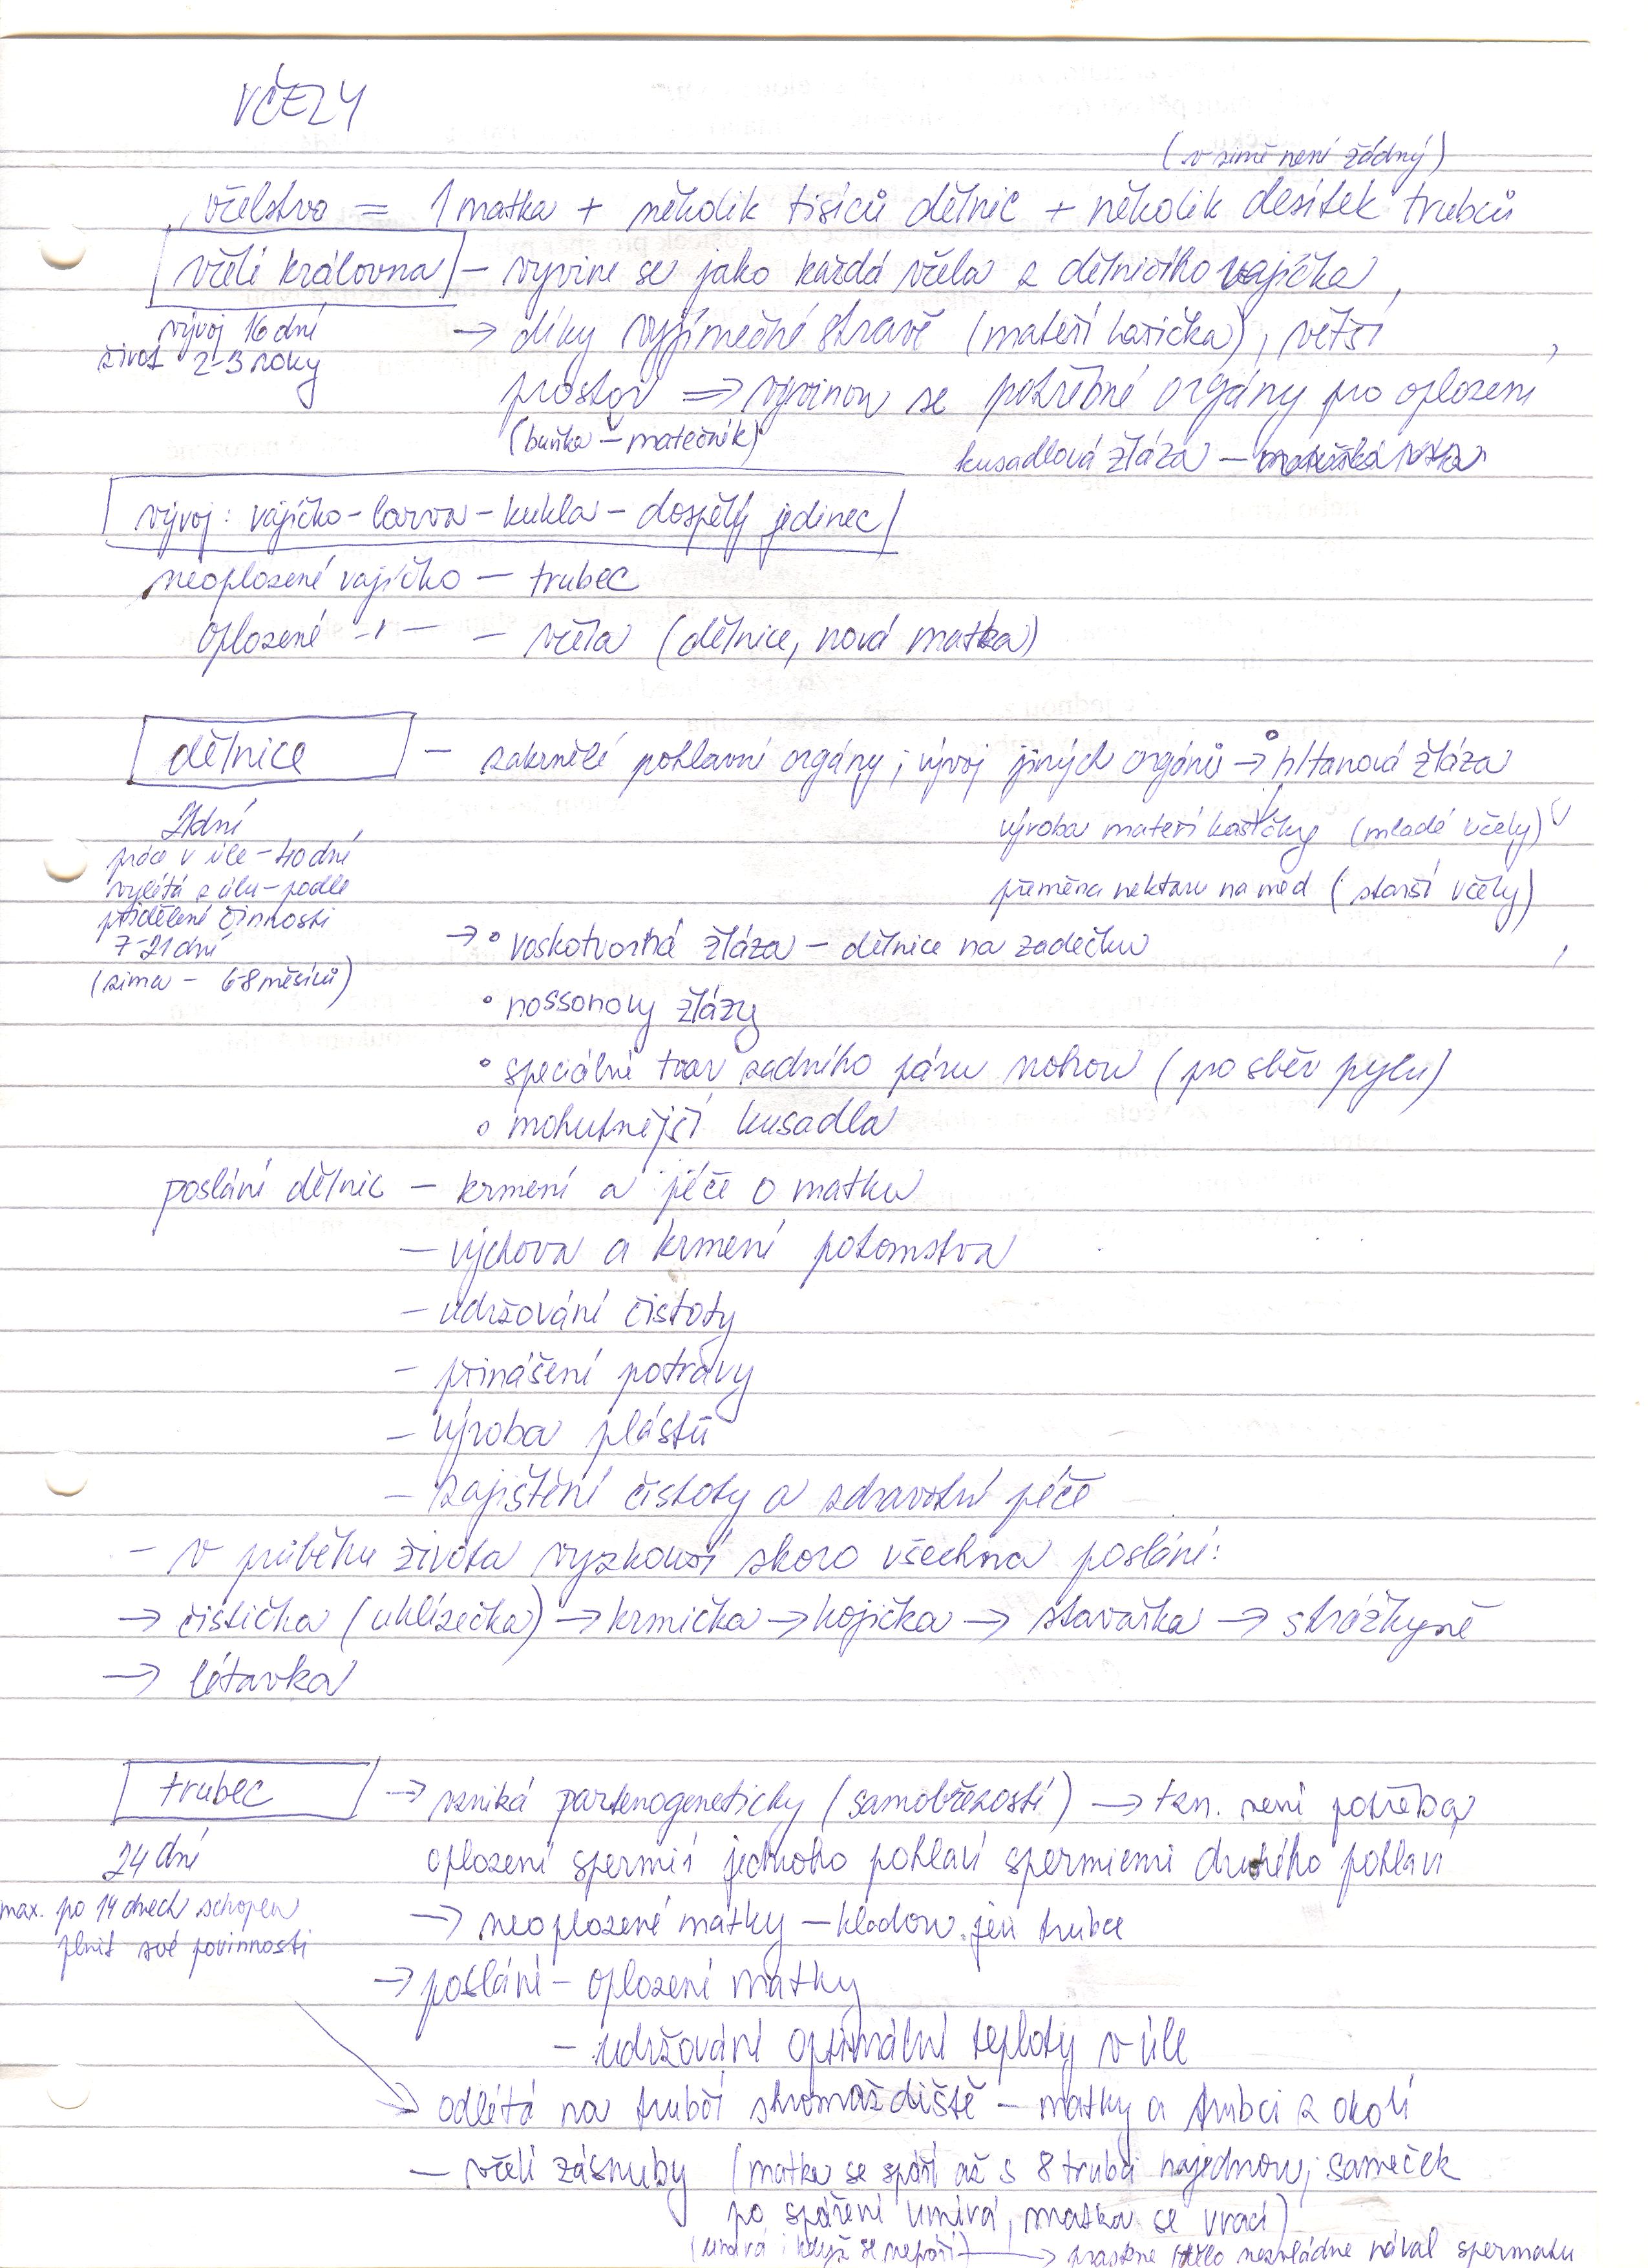 VČELY
(v zimě není žádný)
včelstvo = 1 matka + několik tisíců dělnic + několik desítek trubců
včelí královna – vyvine se jako každá včela z dělničího vajíčka
vývoj 16 dní
život 2-3 roky
→ díky vyjímečné stravě (mateří kašička), větší
prostor ⇒ vyvinou se potřebné orgány pro oplození
(buňka – matečník)
kusadlová žláza –
vývoj: vajíčko – larva – kukla – dospělý jedinec
neoplozené vajíčko – trubec
oplozené -ıı- – včela (dělnice, nová matka)
dělnice – zakrnělé pohlavní orgány; vývoj jiných orgánů → hltanová žláza
21dní
práce v úle – 40 dní
vylétá z úlu – podle
přidělené činnosti
7-21dní
(zima – 6-8 měsíců)
výroba mateří kašičky (mladé včely)
přeměna nektaru na med (starší včely)
→ ° voskotvorná žláza – dělnice na zadečku
° nossonovy žlázy
° speciální tvar zadního páru nohou (pro sběr pylu)
° mohutnější kusadla
poslání dělnic – krmení a péče o matku
– výchova a krmení potomstva
– udržování čistoty
– přinášení potravy
– výroba plástů
– zajištění čistoty a zdravotní péče
– v průběhu života vyzkouší skoro všechna poslání:
→ čistička (uklízečka) → krmička → kojička → stavařka → strážkyně
→ létavka
trubec → vzniká partenogeneticky (samobřezostí) → tzn. není potřeba
24 dní
oplození spermií jednoho pohlaví spermiemi druhého pohlaví
max. po 14 dnech schopen
plnit své povinnosti
→ neoplozené matky – kladou jen trubce
→ poslání – oplození matky
– udržování optimální teploty v úle
odlétá na trubčí shromaždiště – matky a trubci z okolí
– včelí zásnuby (matka se spáří až s 8 trubci najednou; sameček
po spáření umírá, matka se vrací)
(umírá i když se nespáří) → praskne tělo nezvládne nával spermatu